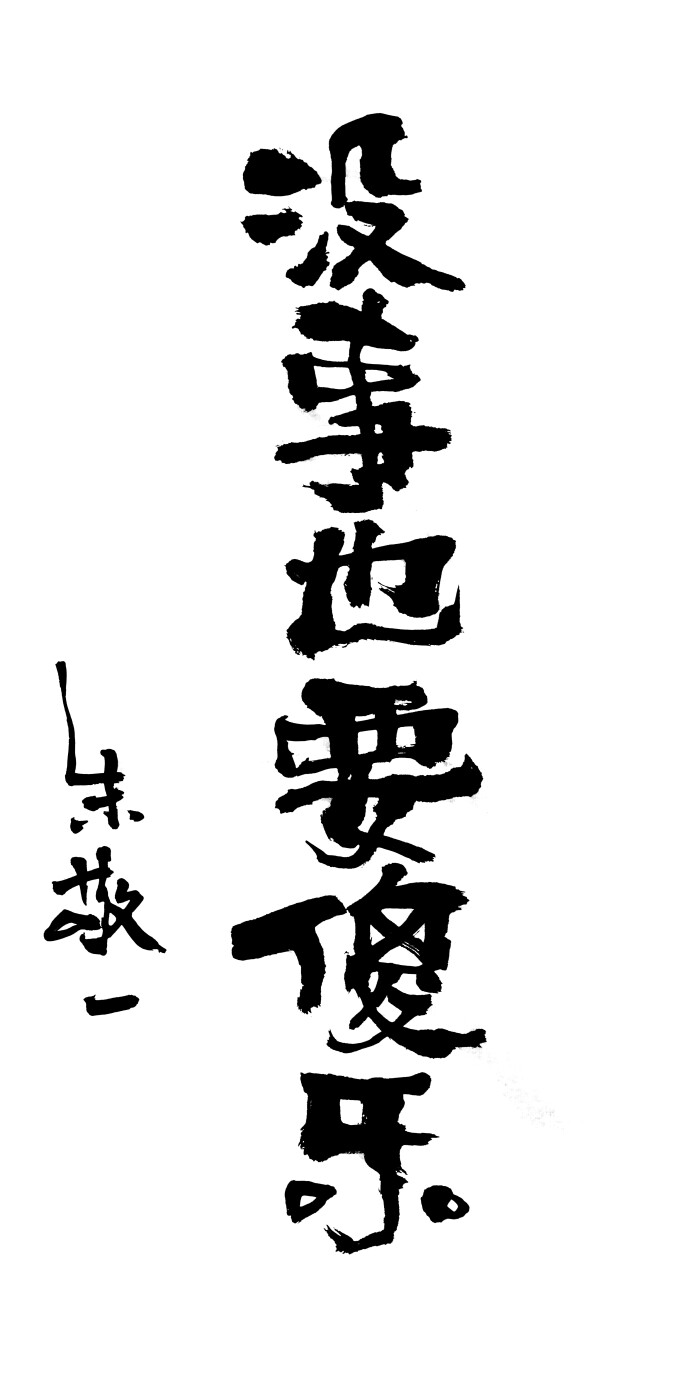 没事也要傻乐
朱敬一